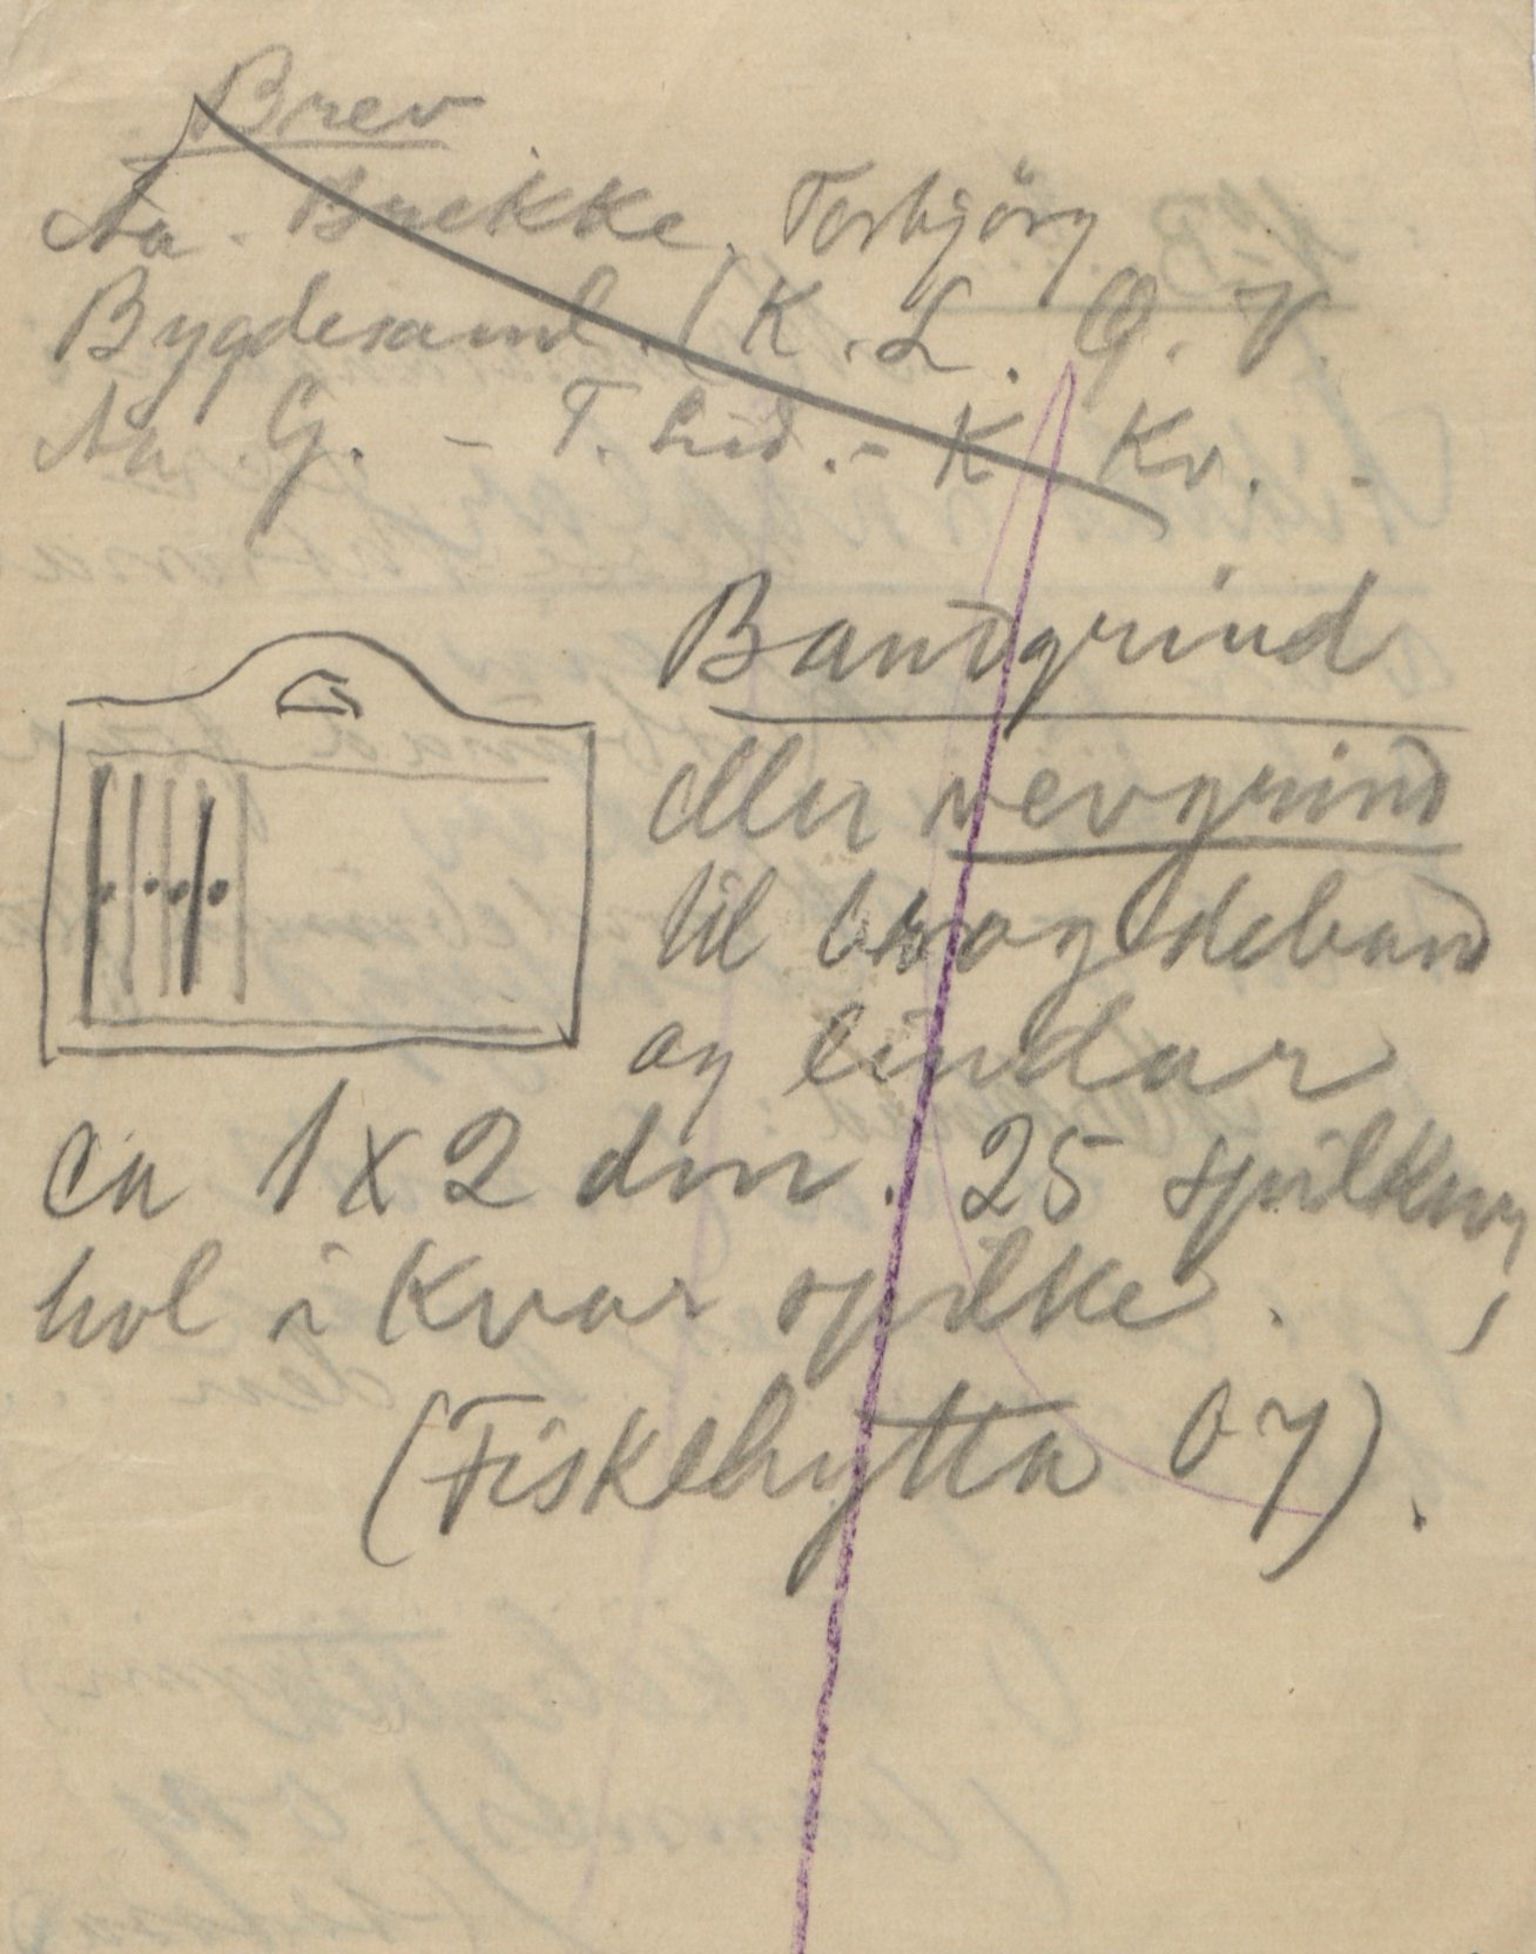 Brev
Aa. Brekke, Torbjörg
Bygdesaml. (K. L. O. V.
Aa G. - T. Lid. - K Kv.
Bandgrind
eller vevgrind
til bragdeband
og lindar
ca 1 x 2 dm. 25 spilkur,
hol i kvar spilke.
(Fiskehytta 07).